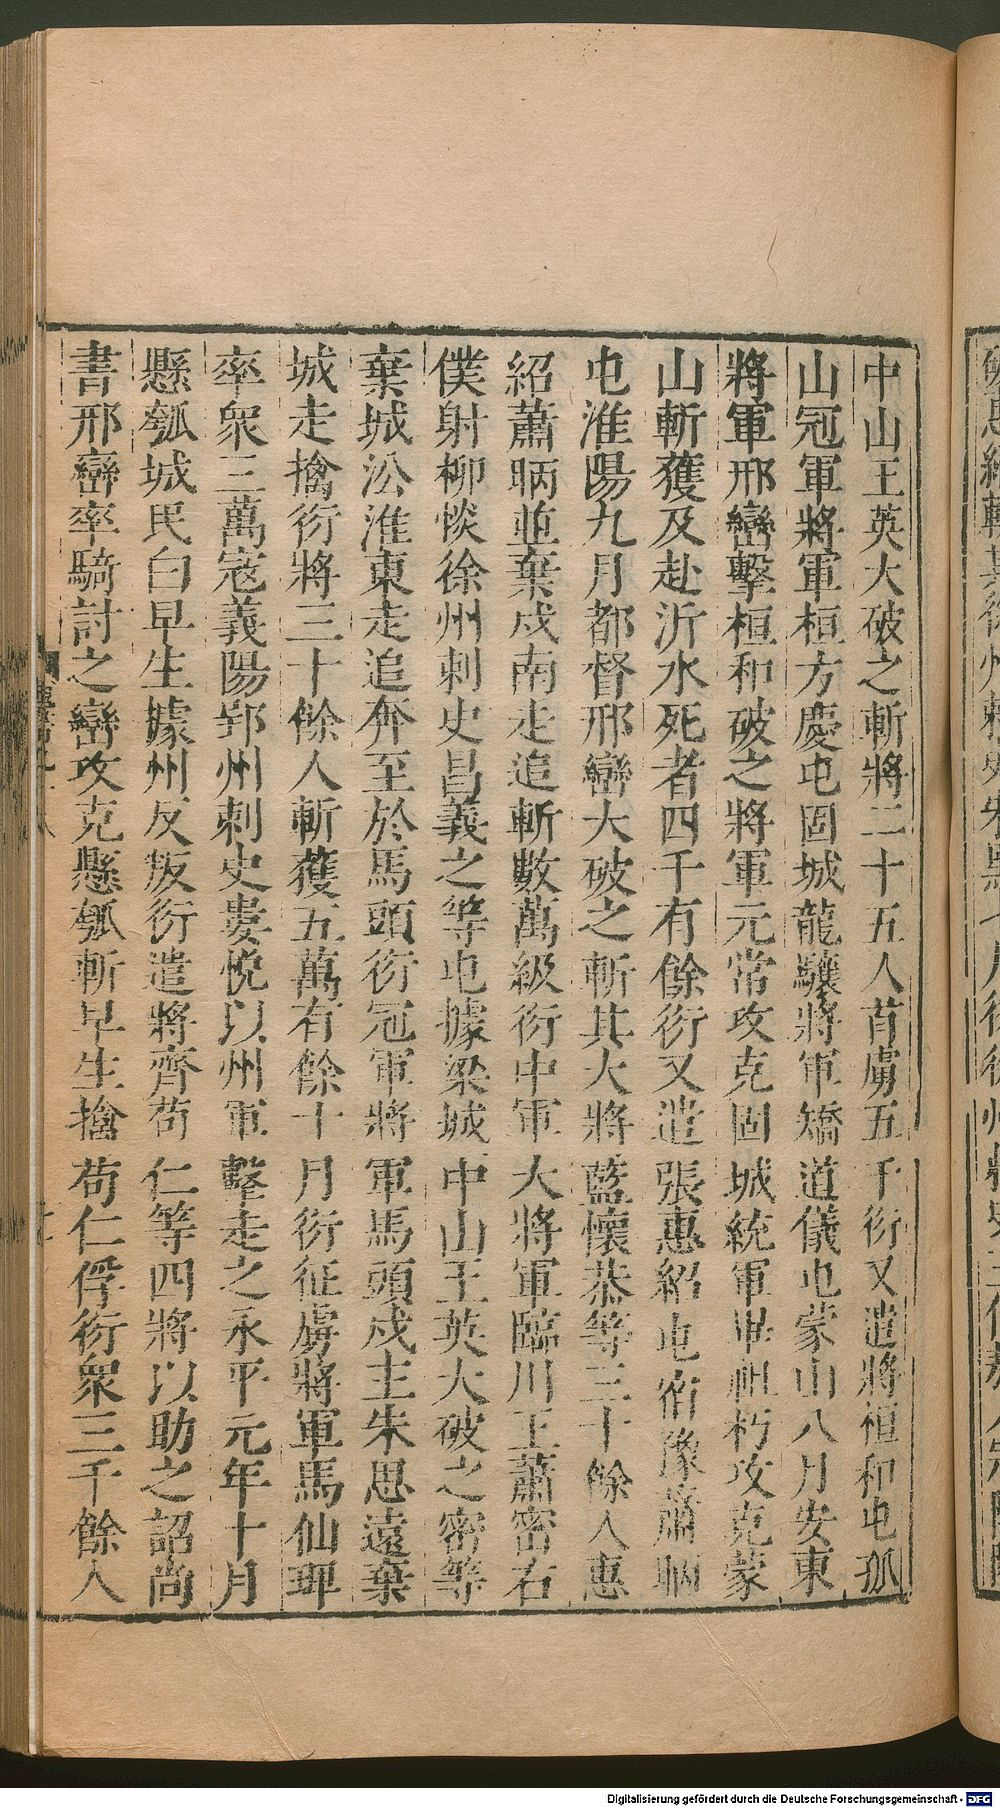 中山王英大破之斬將二十五人首虜五千衍又遣將桓和屯孤
山冠軍將軍桓方慶屯固城龍驤將軍矯道儀屯蒙山八月安東
將軍邢巒擊桓和破之將軍元常攻克固城統軍畢祖朽攻克蒙
山斬獲及赴沂水死者四千有餘衍又遣張惠紹屯宿豫蕭昞
屯淮陽九月都督邢巒大破之斬其大將藍懷恭等三十餘人惠
紹蕭昞並棄戍南走追斬數萬級衍中軍大將軍臨川王蕭密右
僕射柳惔徐州刺史昌義之等屯據梁城中山王英大破之密等
棄城㳂淮東走追奔至於馬頭衍冠軍將軍馬頭戍主朱思遠棄
城走擒衍將三十餘人斬獲五萬有餘十月衍征虜將軍馬仙琕
率衆三萬寇義陽郢州刺史婁悅以州軍擊走之永平元年十月
懸瓠城民白早生據州反叛衍遣將齊苟仁等四將以助之詔尚
書邢巒率騎討之巒攻克懸瓠斬早生擒苟仁俘衍衆三千餘人
Digitalisierung gefördert durch die Deutsche Forschungsgemeinschaft - DFG